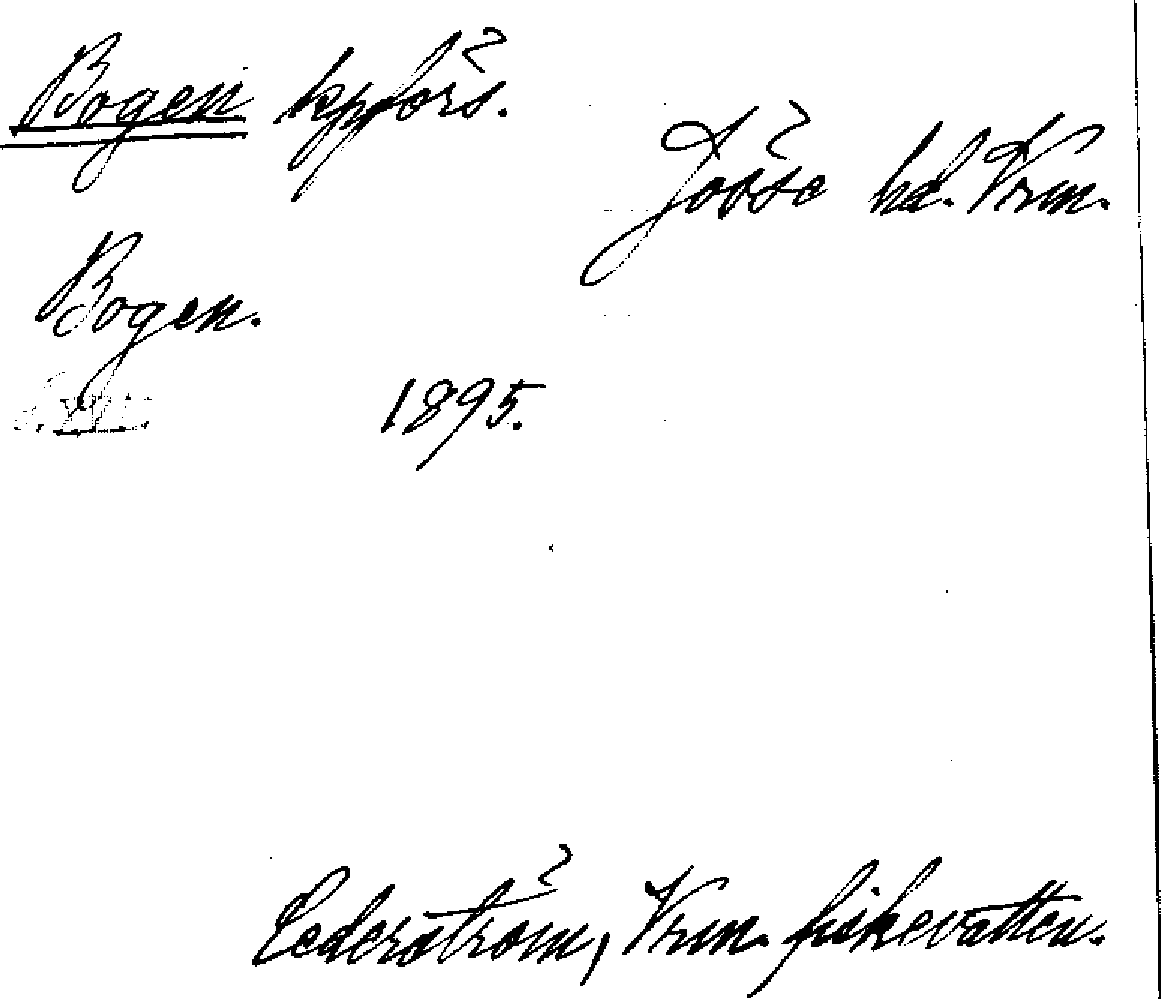 Bogen kpförs.
Jösse hd. Vrm.
Bogen.
1895.
Cederström, Vrm. fiskevatten.